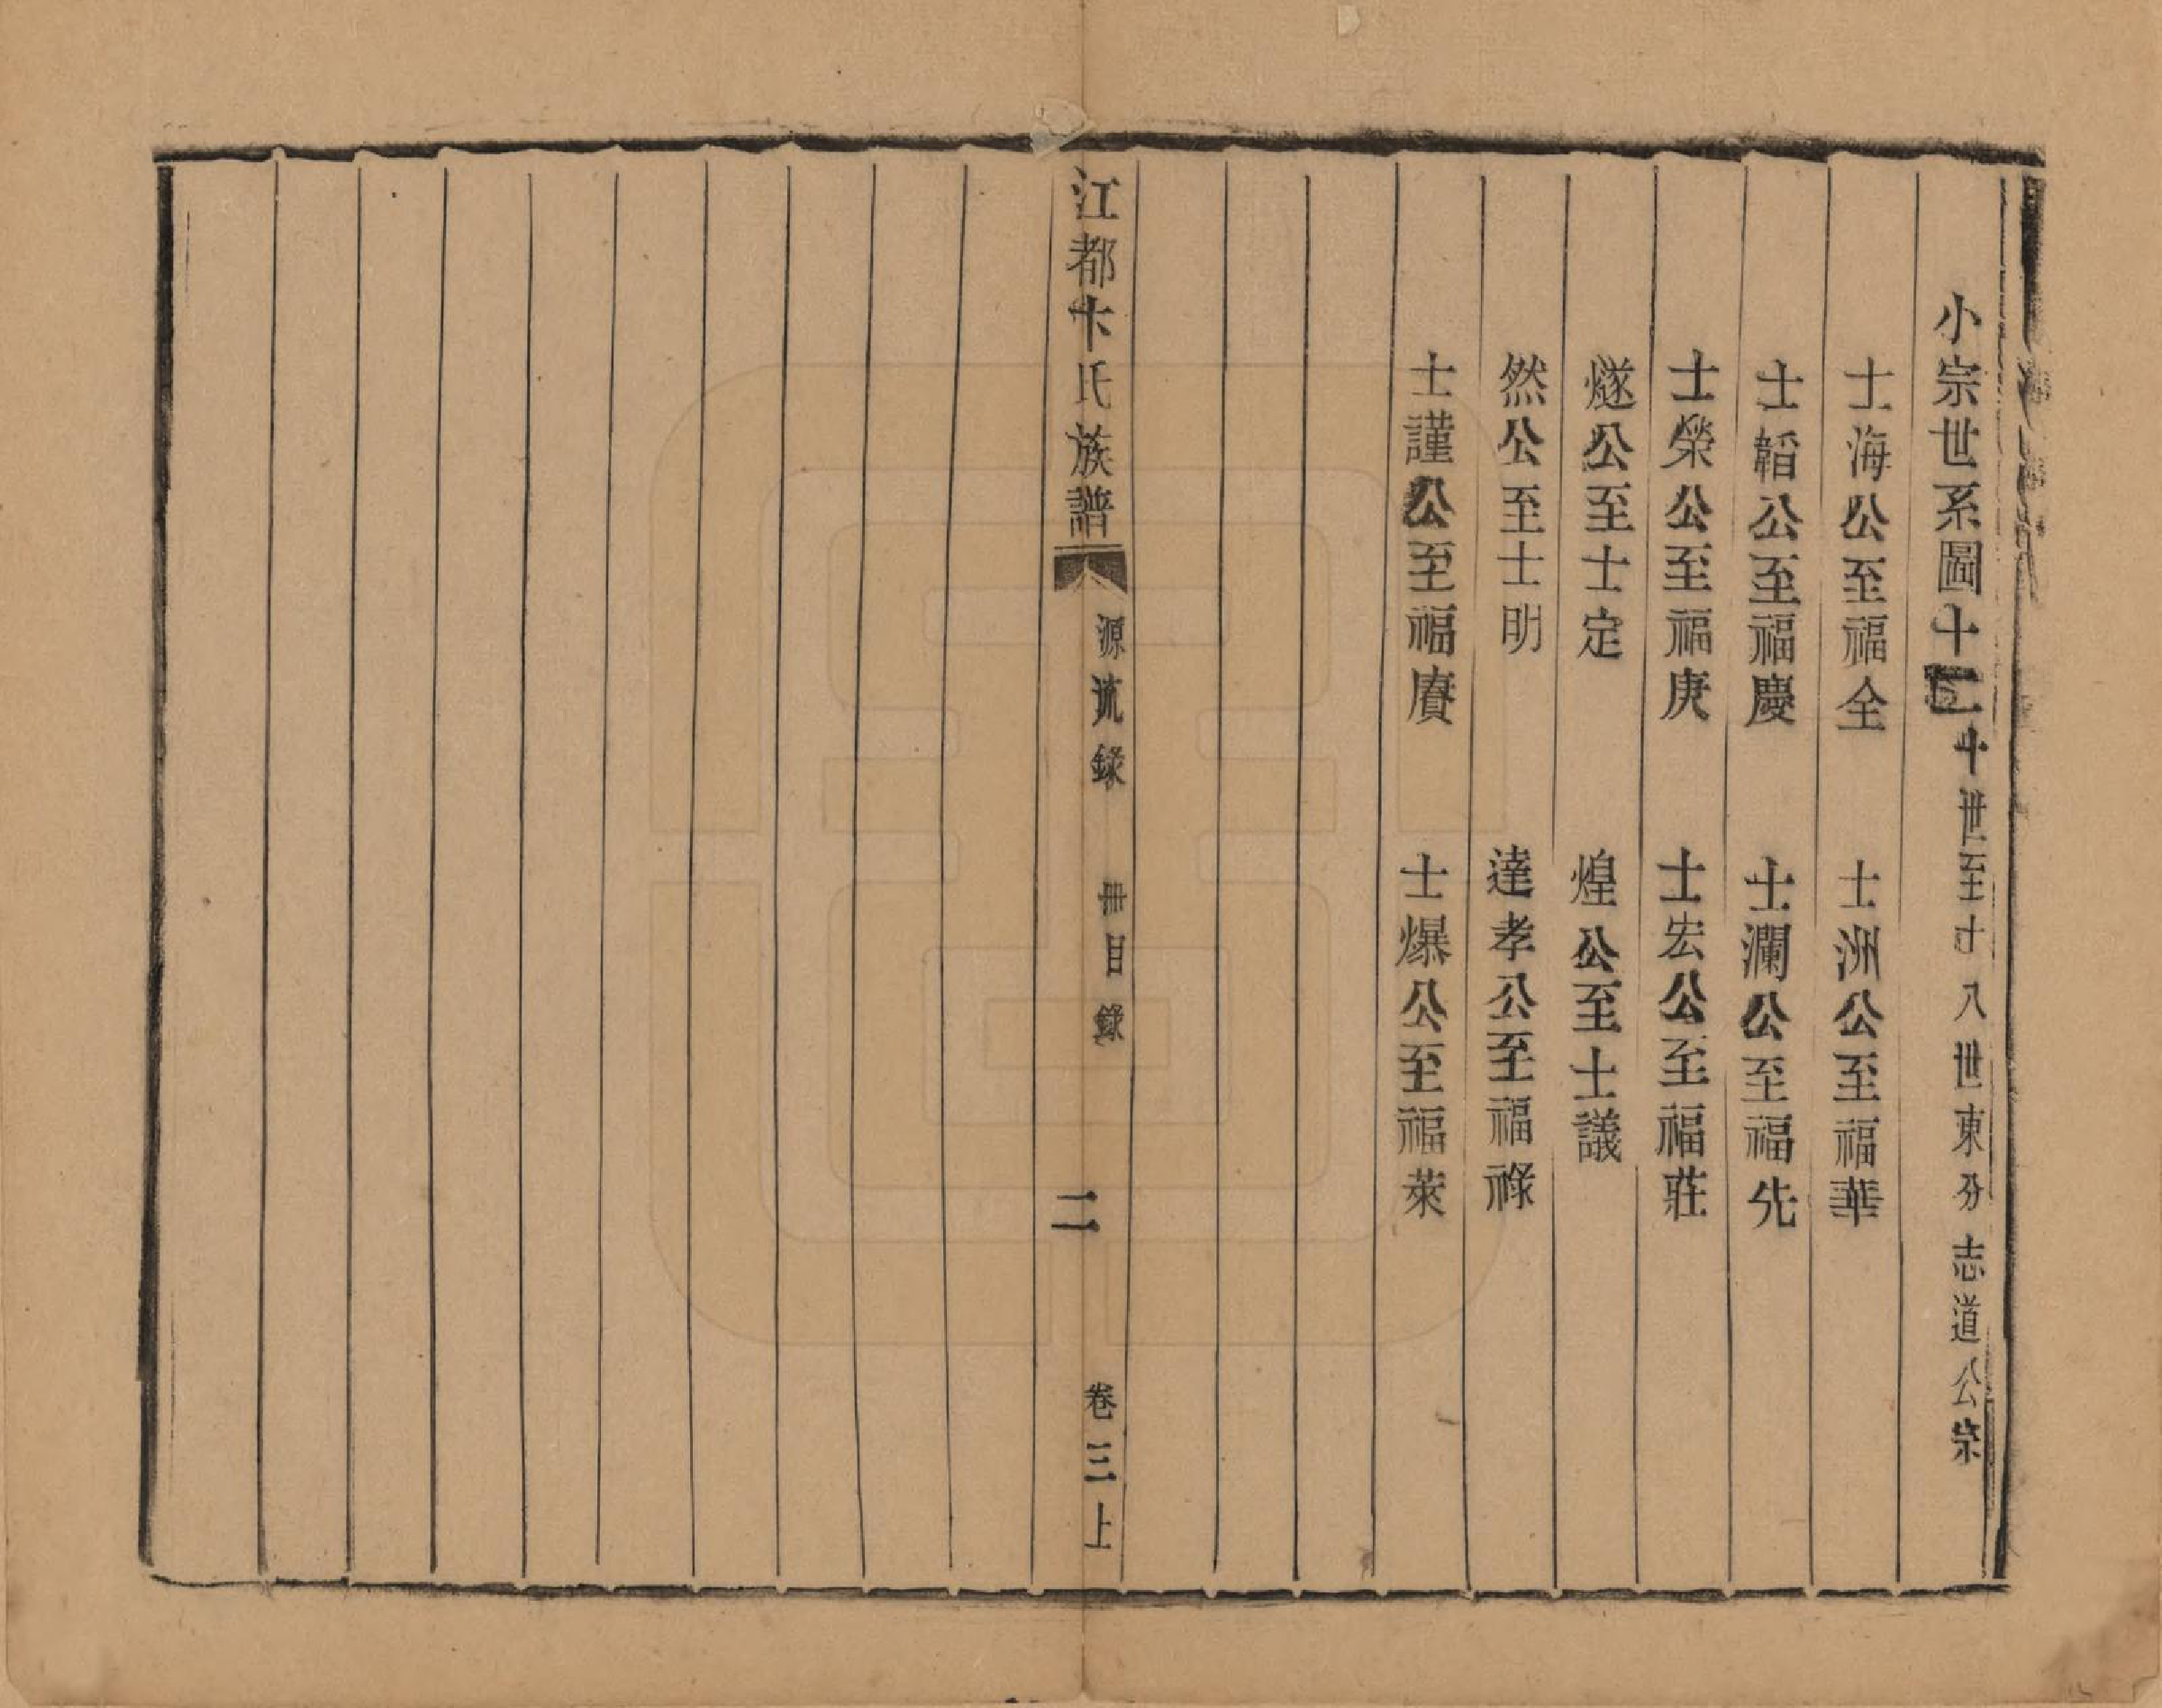 小宗世系圖十二 十世至十八世東分志道公宗
士海公至福全　士洲公至福華
士韜公至福慶　士瀾公至福先
士榮公至福庚　士宏公至福莊
燧公至士定　煌公至士議
然公至士明　達孝公至福祿
士謹公至福賡　士爆公至福萊
江都卞氏族譜　源流錄　卌目錄　二　卷三上